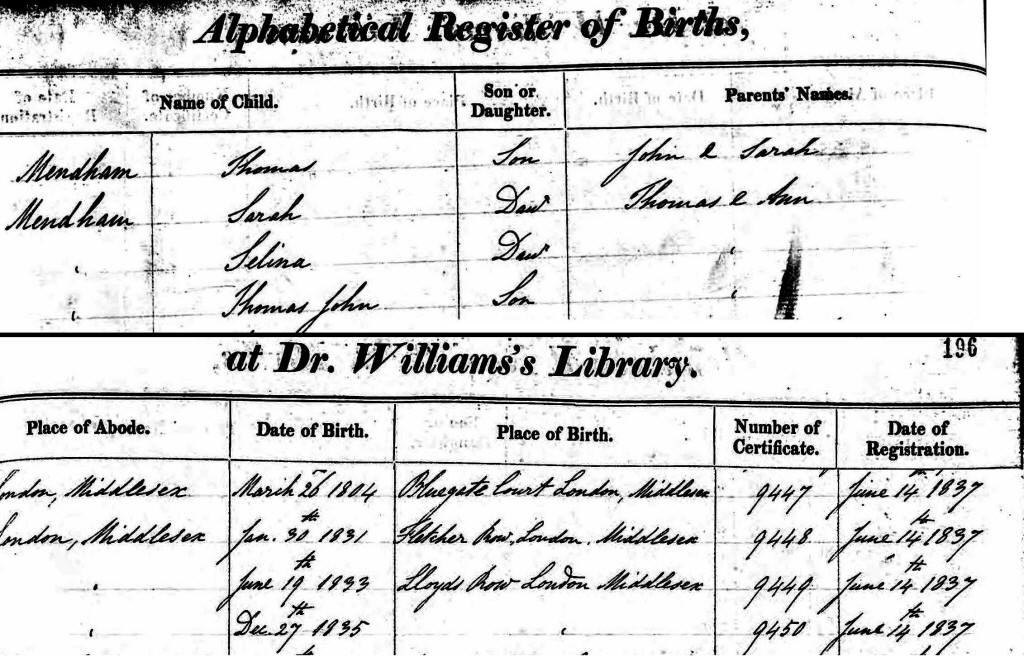 Alphabetical Register of Births,
Name of Child. Son or Daughter. Parents' Names.
Mendham Thomas Son John & Sarah
Mendham Sarah Daur Thomas & Ann
" Selina Daur "
" Thomas John Son "
at Dr. Williams's Library. 196
Place of Abode. Date of Birth. Place of Birth. Number of Certificate. Date of Registration.
London, Middlesex March 26 1804 Bluegate Court London, Middlesex 9447 June 14th 1837
London, Middlesex Jan. 30th 1831 Fletcher Row, London. Middlesex 9448 June 14th 1837
" June 19th 1833 Lloyds Row London Middlesex 9449 June 14th 1837
" Dec. 27th 1835 " 9450 June 14th 1837